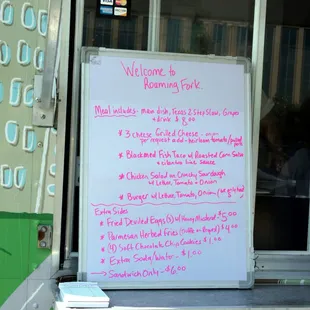 VISA
Welcome to
Roaming Fork.
Meal includes - main dish, Texas 2 Step Slaw, Grapes
+ drink $8.00
* 3 cheese Grilled Cheese -
per request add - heirloom tomato/
* Blackened Fish Taco w/ Roasted Corn Salsa
+ cilantro lime sauce
* Chicken Salad on Crunchy Sourdough
w/ Lettuce, Tomato + Onion
* Burger w/ Lettuce, Tomato, Onion
Extra Sides
* Fried Deviled Eggs (3) w/ Honey Mustard $5.00
* Parmesan Herbed Fries $4.00
* (4) Soft Chocolate Chip Cookies $1.00
* Extra Soda/Water - $1.00
→ Sandwich Only - $6.00